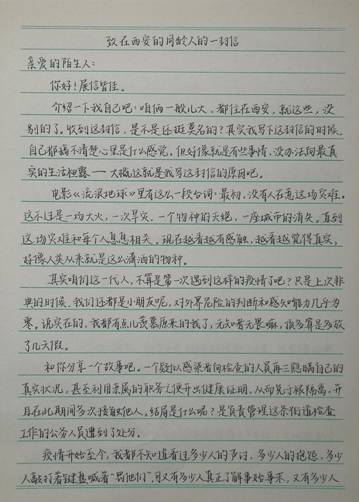 致在西安的同龄人的一封信
亲爱的陌生人：
你好！展信皆佳。
介绍一下我自己吧：咱俩一般儿大，都住在西安，就这些，没
别的了。收到这封信，是不是还挺莫名的？其实我写下这封信的时候，
自己都搞不清楚心里是什么感觉。但好像就是有些事情，没办法向最真
实的生活袒露——大概这就是我写这封信的原因吧。
电影《流浪地球》里有这么一段台词：最初，没有人在意这场灾难。
这不过是一场大火，一次旱灾，一个物种的灭绝，一座城市的消失。直到
这场灾难和每个人息息相关。现在越看越有感触，越看越觉得真实，
好像人类从来就是这么潇洒的物种。
其实咱们这一代人，不算是第一次遇到这样的疫情了吧？只是上次非
典的时候，我们还都是小朋友呢，对外界危险的判断和感知能力几乎为
零。说实在的，我都有点儿羡慕原来的我了，无知者无畏嘛，顶多算是多放
了几天假。
和你分享一个故事吧。一个疑似感染者向检查的人员再三隐瞒自己的
真实状况，甚至利用亲属的职务之便开出健康证明，从而免于被隔离，并
且在此期间多次接触他人，结局是什么呢？是负责管理这条街道检查
工作的公务人员遭到了处分。
疫情开始至今，我都不知道看过多少人的争讨，多少人的抱怨，多少
人敲打着键盘喊着“骂他们”，可又有多少人真正了解事始事末，又有多少人